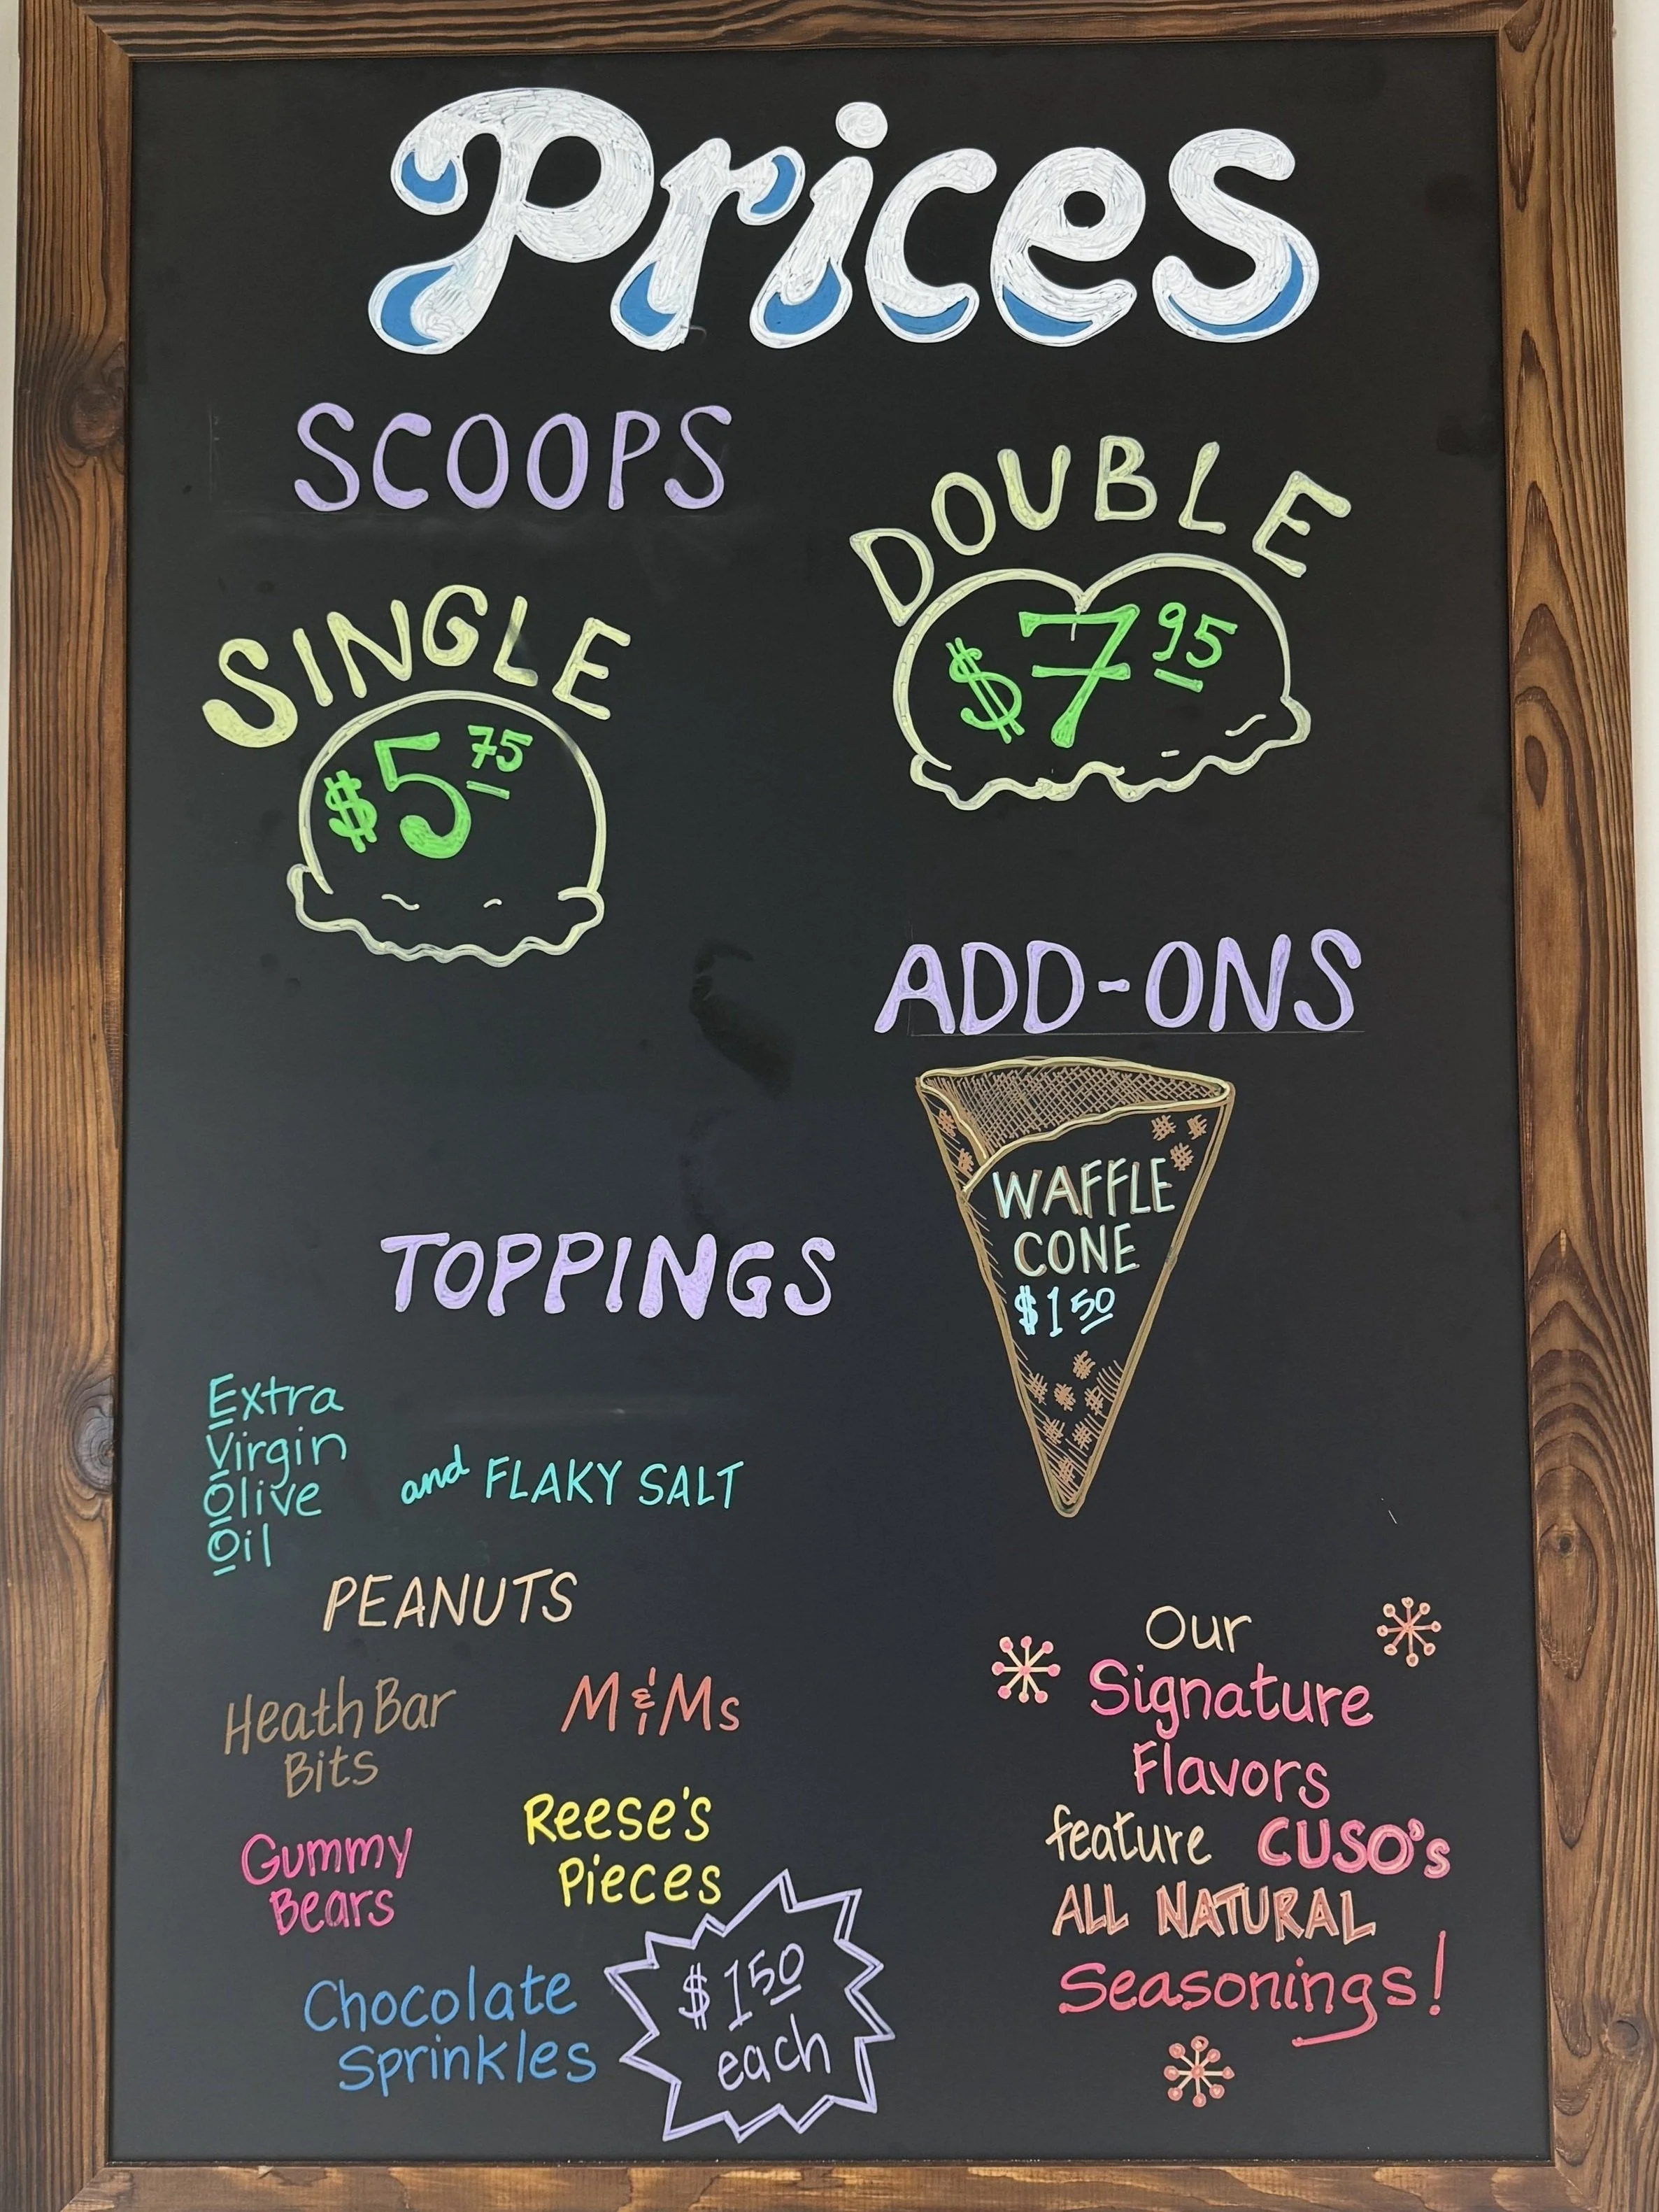 Prices
SCOOPS
SINGLE
$5 75
DOUBLE
$7 95
ADD-ONS
WAFFLE
CONE
$1 50
TOPPINGS
Extra
Virgin
Olive
Oil
and FLAKY SALT
PEANUTS
Heath Bar
Bits
M&Ms
Gummy
Bears
Reese's
Pieces
Chocolate
Sprinkles
$1 50
each
Our
Signature
Flavors
feature CUSO's
ALL NATURAL
Seasonings!